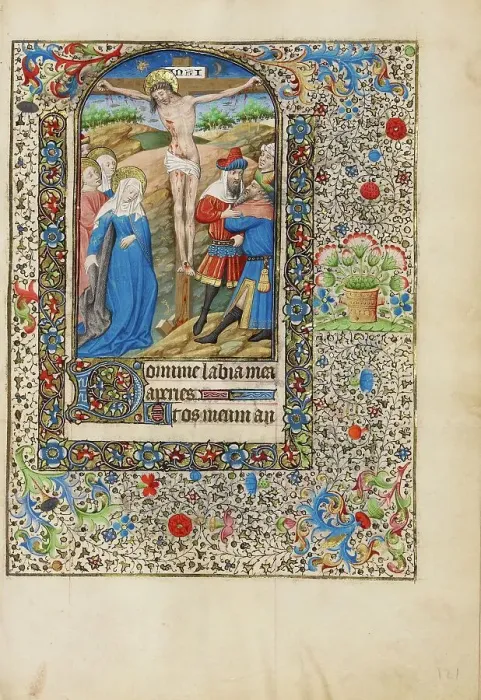 INRI
Domine labia mea
aperies
Et os meum an